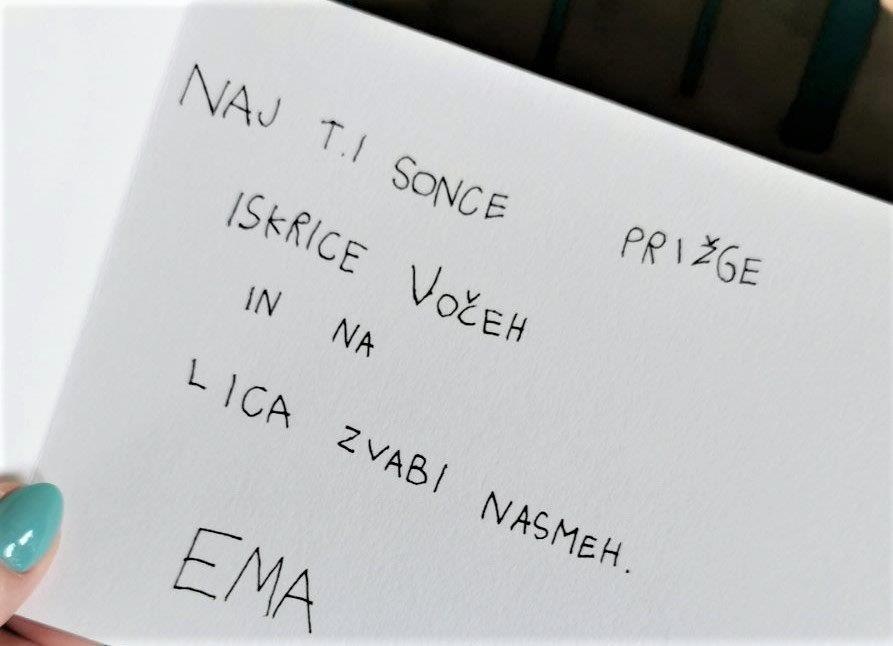 NAJ T.I SONCE PRIŽGE
ISKRICE VOČEH
IN NA
LICA ZVABI NASMEH.
EMA